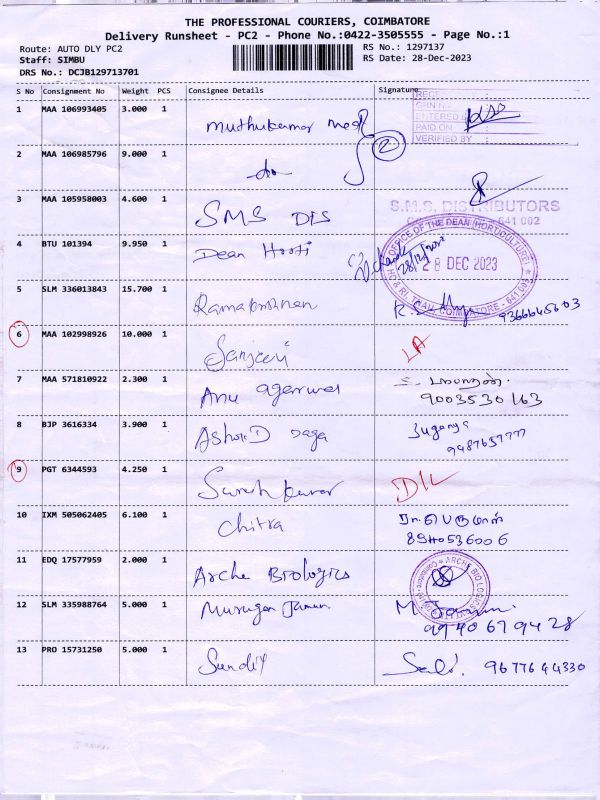 THE PROFESSIONAL COURIERS, COIMBATORE
Delivery Runsheet - PC2 - Phone No.:0422-3505555 - Page No.:1
Route: AUTO DLY PC2
RS No.: 1297137
Staff: SIMBU
RS Date: 28-Dec-2023
DRS No.: DCJB129713701
S No Consignment No Weight PCS Consignee Details Signature
ENTERED
PAID ON :
VERIFIED BY :
1 MAA 106993405 3.000 1 Muthukumar
2 MAA 106985796 9.000 1 do 2
3 MAA 105958003 4.600 1 SMS DIS
S.M.S. DISTRIBUTORS
641 002
4 BTU 101394 9.950 1 Dean Horti
OFFICE OF THE DEAN (HORTICULTURE)
28 DEC 2023
COIMBATORE - 641 003
5 SLM 336013843 15.700 1 Ramakrishnan
6 MAA 102998926 10.000 1 Sanjeevi LA
7 MAA 571810922 2.300 1 Anu agarwal
9003530163
8 BJP 3616334 3.900 1 Ashok D raga Suganya
9487657777
9 PGT 6344593 4.250 1 Suresh Kumar D/L
10 IXM 505062405 6.100 1 Chitra
பெருமாள்
8940536006
11 EDQ 17577959 2.000 1 Arche Biologics
ARCHE BIOLOGICS
12 SLM 335988764 5.000 1 Murugan M
9940679428
13 PRO 15731250 5.000 1 9677644330